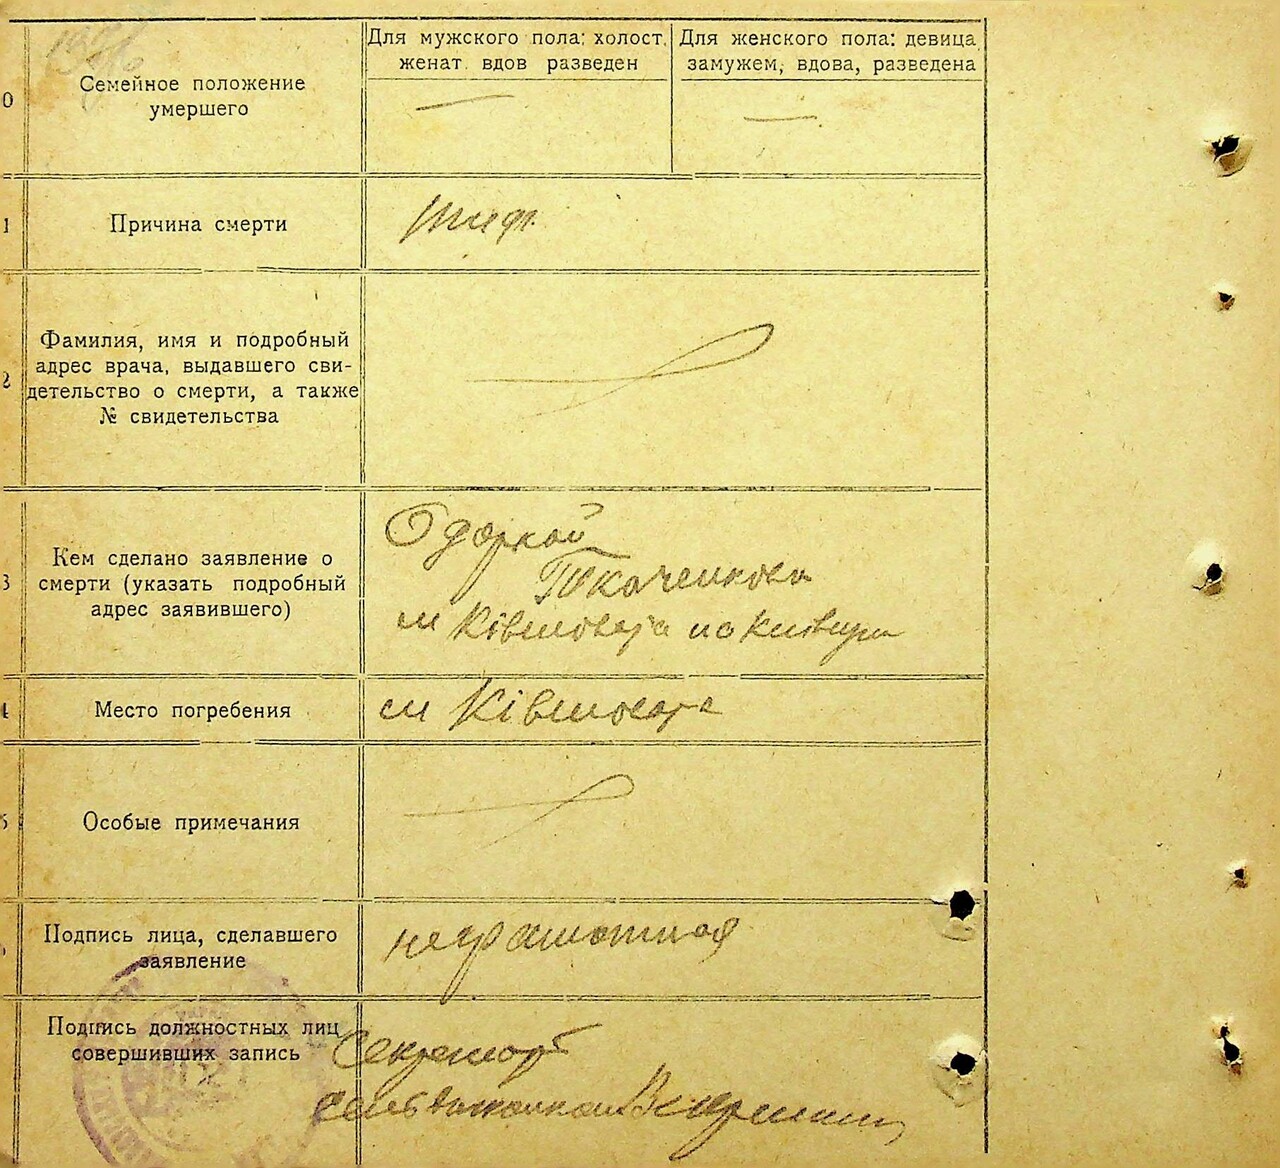 0
Семейное положение
умершего
Для мужского пола: холост,
женат вдов разведен
Для женского пола: девица,
замужем, вдова, разведена
—
—
1
Причина смерти
тиф.
2
Фамилия, имя и подробный
адрес врача, выдавшего сви-
детельство о смерти, а также
№ свидетельства
3
Кем сделано заявление о
смерти (указать подробный
адрес заявившего)
Одоркой
Ткаченкова
м Ківшовата
4
Место погребения
м Ківшовата
5
Особые примечания
Подпись лица, сделавшего
заявление
неграмотная
Подпись должностных лиц
совершивших запись
Секретарь